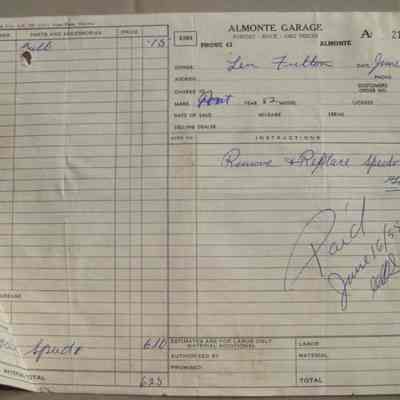 PARTS AND ACCESSORIES PRICE
Bulb .15
Speedo 6 10
MATERIAL TOTAL 6 25
6301 ALMONTE GARAGE A 21
PONTIAC - BUICK - GMC TRUCKS
PHONE 42 ALMONTE
OWNER Len Fulton DATE June
ADDRESS PHONE
CHARGE TO CUSTOMERS ORDER NO.
MAKE Pont YEAR 52 MODEL LICENSE
DATE OF SALE MILEAGE SERIAL
SELLING DEALER
INSTRUCTIONS
Remove & Replace Speedo
Paid
June 16/55
ESTIMATES ARE FOR LABOR ONLY
MATERIAL ADDITIONAL LABOR
AUTHORIZED BY MATERIAL
PROMISED
TOTAL